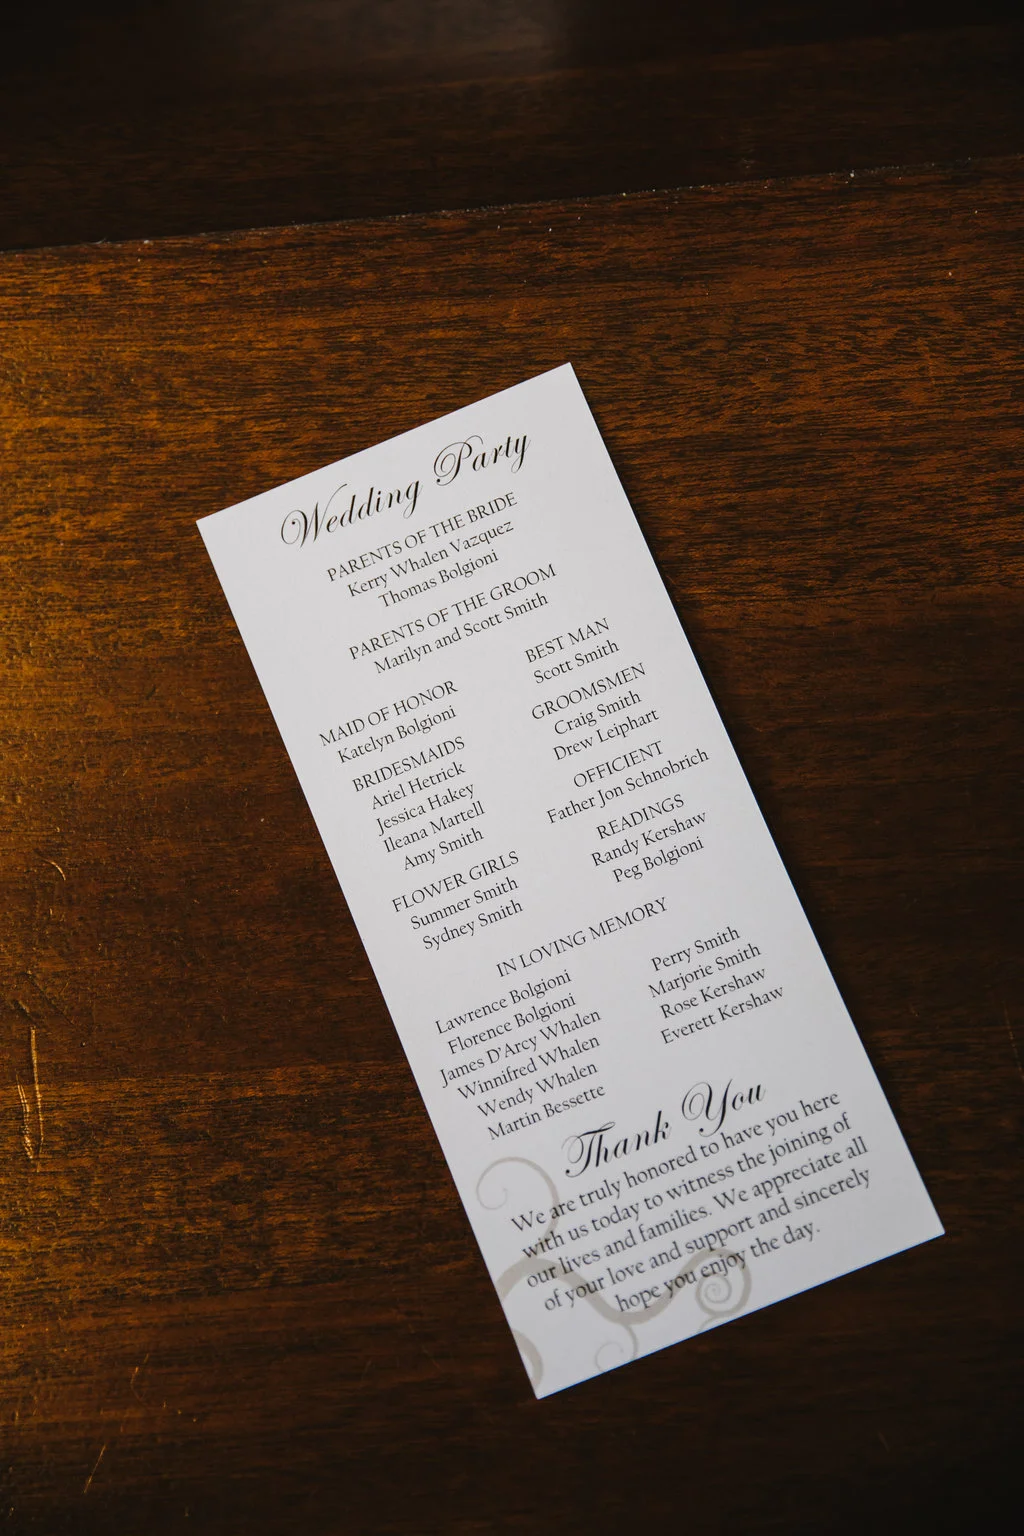 Wedding Party
PARENTS OF THE BRIDE
Kerry Whalen Vazquez
Thomas Bolgioni
PARENTS OF THE GROOM
Marilyn and Scott Smith
MAID OF HONOR
Katelyn Bolgioni
BRIDESMAIDS
Ariel Hetrick
Jessica Hakey
Ileana Martell
Amy Smith
FLOWER GIRLS
Summer Smith
Sydney Smith
BEST MAN
Scott Smith
GROOMSMEN
Craig Smith
Drew Leiphart
OFFICIENT
Father Jon Schnobrich
READINGS
Randy Kershaw
Peg Bolgioni
IN LOVING MEMORY
Lawrence Bolgioni
Florence Bolgioni
James D'Arcy Whalen
Winnifred Whalen
Wendy Whalen
Martin Bessette
Perry Smith
Marjorie Smith
Rose Kershaw
Everett Kershaw
Thank You
We are truly honored to have you here
with us today to witness the joining of
our lives and families. We appreciate all
of your love and support and sincerely
hope you enjoy the day.